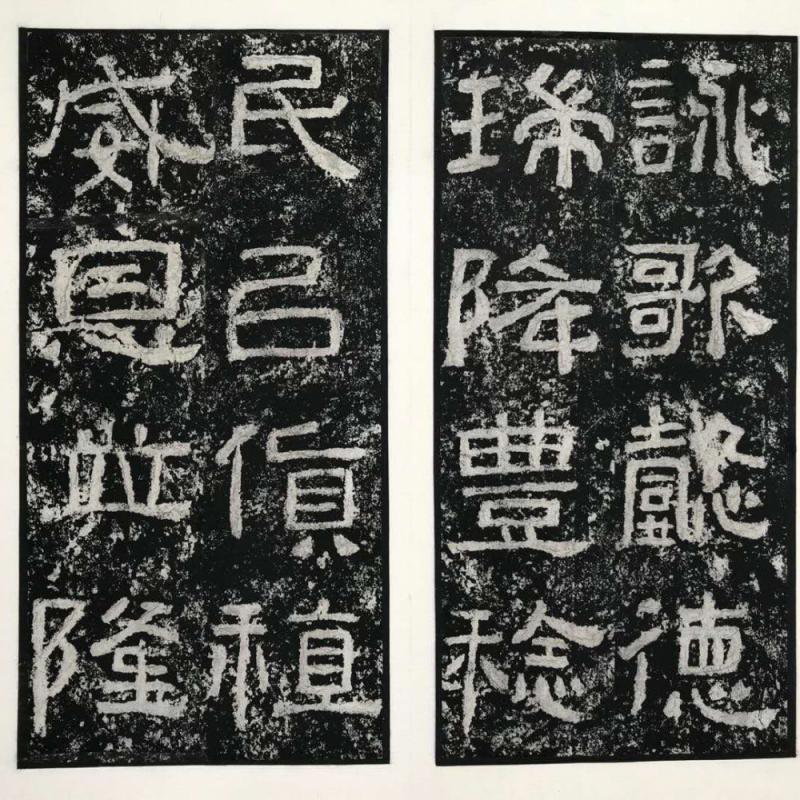 詠歌懿德
瑞降豐稔
民㠯貨稙
威恩竝隆